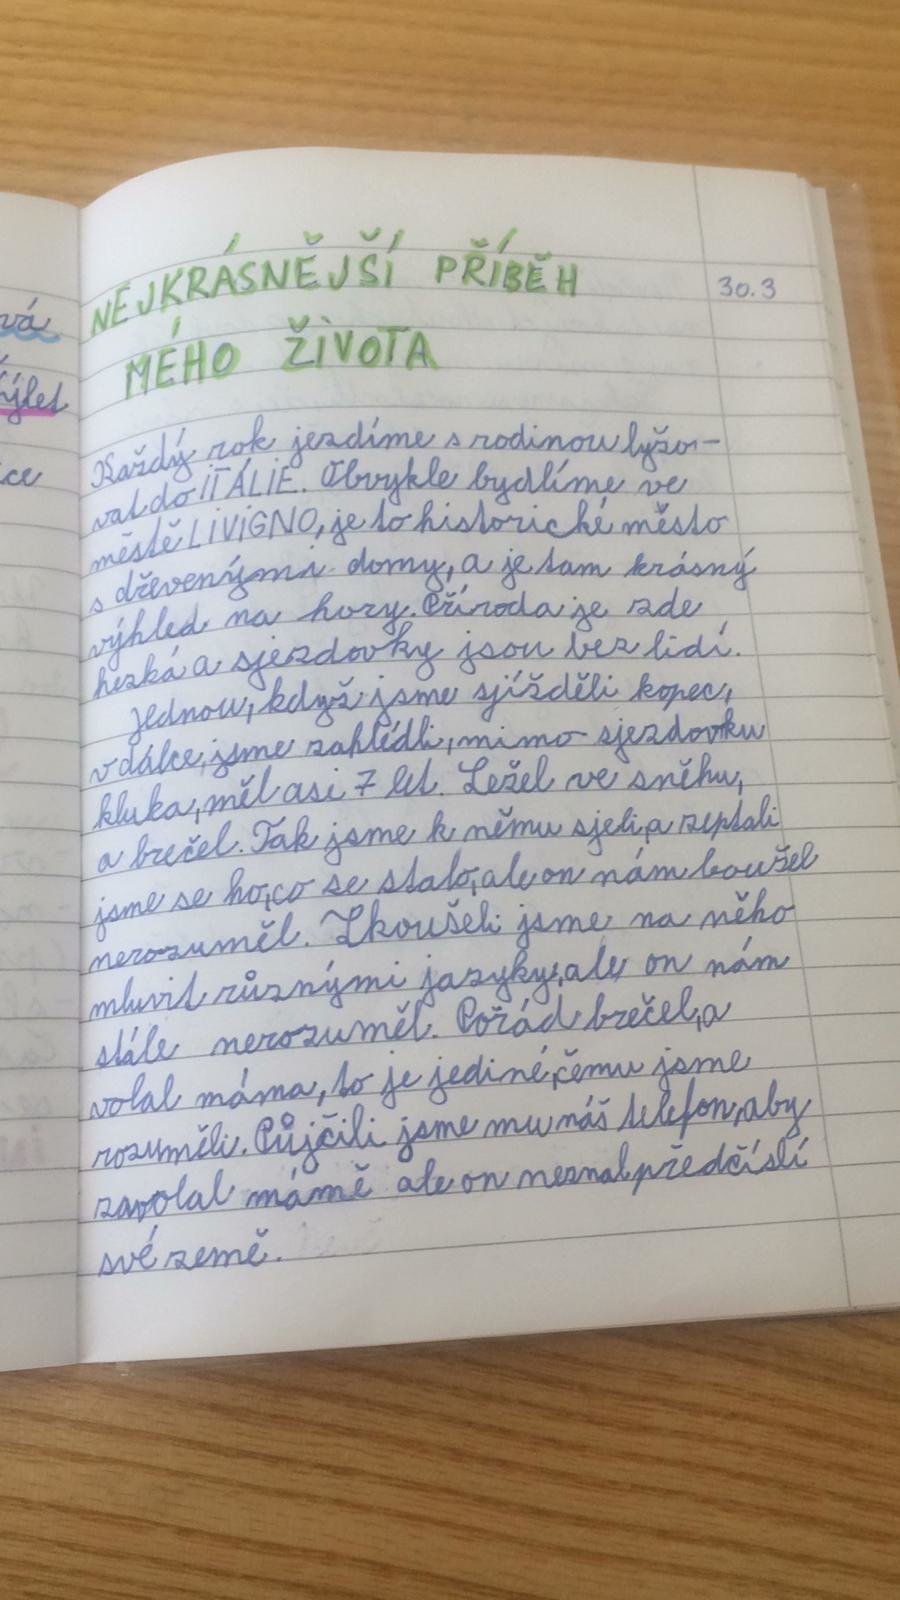 NEJKRÁSNĚJŠÍ PŘÍBĚH
30.3
MÉHO ŽIVOTA
Každý rok jezdíme s rodinou lyžo-
vat do ITÁLIE. Obvykle bydlíme ve
městě LIVIGNO, je to historické město
s dřevenými domy, a je tam krásný
výhled na hory. Příroda je zde
hezká a sjezdovky jsou bez lidí.
Jednou, když jsme sjížděli kopec,
v dálce, jsme zahlédli, mimo sjezdovku
kluka, měl asi 7 let. Ležel ve sněhu,
a brečel. Tak jsme k němu sjeli, a zeptali
jsme se ho, co se stalo, ale on nám boužel
nerozuměl. Zkoušeli jsme na něho
mluvit různými jazyky, ale on nám
stále nerozuměl. Pořád brečel, a
volal máma, to je jediné, čemu jsme
rozuměli. Půjčili jsme mu náš telefon, aby
zavolal mámě ale on neznal předčíslí
své země.
vá
ce